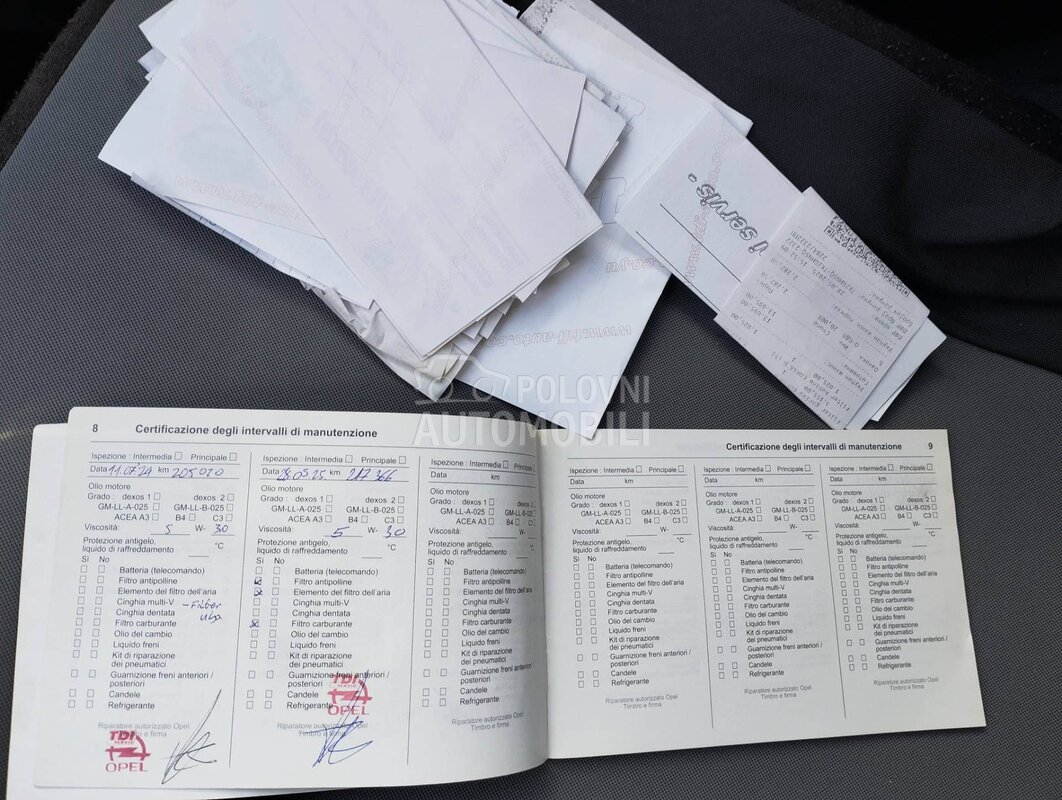 www.tdi-auto.co
co.yu
i servis.
1.025,00
13.695,00
2.282,50
POLOVNI
AUTOMOBILI
8 Certificazione degli intervalli di manutenzione
Ispezione : Intermedia Principale
Data 11.07.24 km 205020
Olio motore
Grado : dexos 1 dexos 2
GM-LL-A-025 GM-LL-B-025
ACEA A3 B4 C3
Viscosità: 5 W- 30
Protezione antigelo,
liquido di raffreddamento °C
Sì No
Batteria (telecomando)
Filtro antipolline
Elemento del filtro dell'aria
Cinghia multi-V
Cinghia dentata
Filtro carburante
Olio del cambio
Liquido freni
Kit di riparazione
dei pneumatici
Guarnizione freni anteriori /
posteriori
Candele
Refrigerante
Riparatore autorizzato Opel
Timbro e firma
TDI
OPEL
Ispezione : Intermedia Principale
Data 28.05.25 km 217 366
Olio motore
Grado : dexos 1 dexos 2
GM-LL-A-025 GM-LL-B-025
ACEA A3 B4 C3
Viscosità: 5 W- 30
Protezione antigelo,
liquido di raffreddamento °C
Sì No
Batteria (telecomando)
Filtro antipolline
Elemento del filtro dell'aria
Cinghia multi-V
Cinghia dentata
Filtro carburante
Olio del cambio
Liquido freni
Kit di riparazione
dei pneumatici
Guarnizione freni anteriori /
posteriori
Candele
Refrigerante
TDI
OPEL
Ispezione : Intermedia Principale
Data km
Olio motore
Grado : dexos 1 dexos 2
GM-LL-A-025 GM-LL-B-025
ACEA A3 B4 C3
Viscosità: W-
Protezione antigelo,
liquido di raffreddamento °C
Sì No
Batteria (telecomando)
Filtro antipolline
Elemento del filtro dell'aria
Cinghia multi-V
Cinghia dentata
Filtro carburante
Olio del cambio
Liquido freni
Kit di riparazione
dei pneumatici
Guarnizione freni anteriori /
posteriori
Candele
Refrigerante
Riparatore autorizzato Opel
Timbro e firma
Certificazione degli intervalli di manutenzione 9
Ispezione : Intermedia Principale
Data km
Olio motore
Grado : dexos 1 dexos 2
GM-LL-A-025 GM-LL-B-025
ACEA A3 B4 C3
Viscosità: W-
Protezione antigelo,
liquido di raffreddamento °C
Sì No
Batteria (telecomando)
Filtro antipolline
Elemento del filtro dell'aria
Cinghia multi-V
Cinghia dentata
Filtro carburante
Olio del cambio
Liquido freni
Kit di riparazione
dei pneumatici
Guarnizione freni anteriori /
posteriori
Candele
Refrigerante
Riparatore autorizzato Opel
Timbro e firma
Ispezione : Intermedia Principale
Data km
Olio motore
Grado : dexos 1 dexos 2
GM-LL-A-025 GM-LL-B-025
ACEA A3 B4 C3
Viscosità: W-
Protezione antigelo,
liquido di raffreddamento °C
Sì No
Batteria (telecomando)
Filtro antipolline
Elemento del filtro dell'aria
Cinghia multi-V
Cinghia dentata
Filtro carburante
Olio del cambio
Liquido freni
Kit di riparazione
dei pneumatici
Guarnizione freni anteriori /
posteriori
Candele
Refrigerante
Riparatore autorizzato Opel
Timbro e firma
Ispezione : Intermedia Principale
Data km
Olio motore
Grado : dexos 1 dexos 2
GM-LL-A-025 GM-LL-B-025
ACEA A3 B4 C3
Viscosità: W-
Protezione antigelo,
liquido di raffreddamento °C
Sì No
Batteria (telecomando)
Filtro antipolline
Elemento del filtro dell'aria
Cinghia multi-V
Cinghia dentata
Filtro carburante
Olio del cambio
Liquido freni
Kit di riparazione
dei pneumatici
Guarnizione freni anteriori /
posteriori
Candele
Refrigerante
Riparatore autorizzato Opel
Timbro e firma